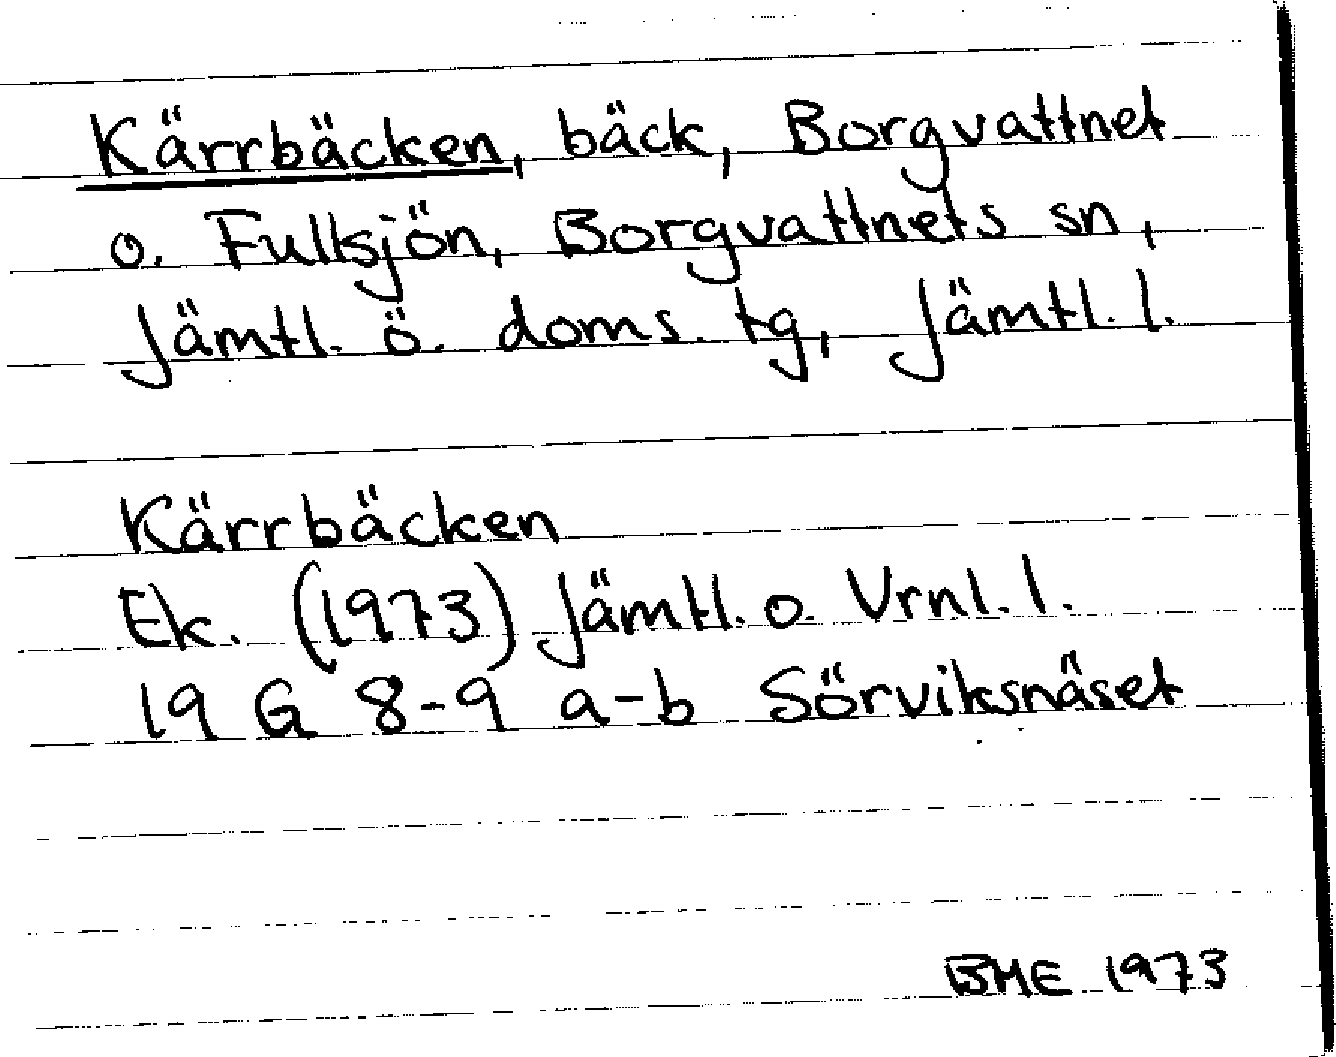 Kärrbäcken, bäck, Borgvattnet
o. Fullsjön, Borgvattnets sn,
Jämtl. ö. doms. tg, Jämtl. l.
Kärrbäcken
Ek. (1973) Jämtl. o. Vrnl. l.
19 G 8-9 a-b Sörviksnäset
BME 1973